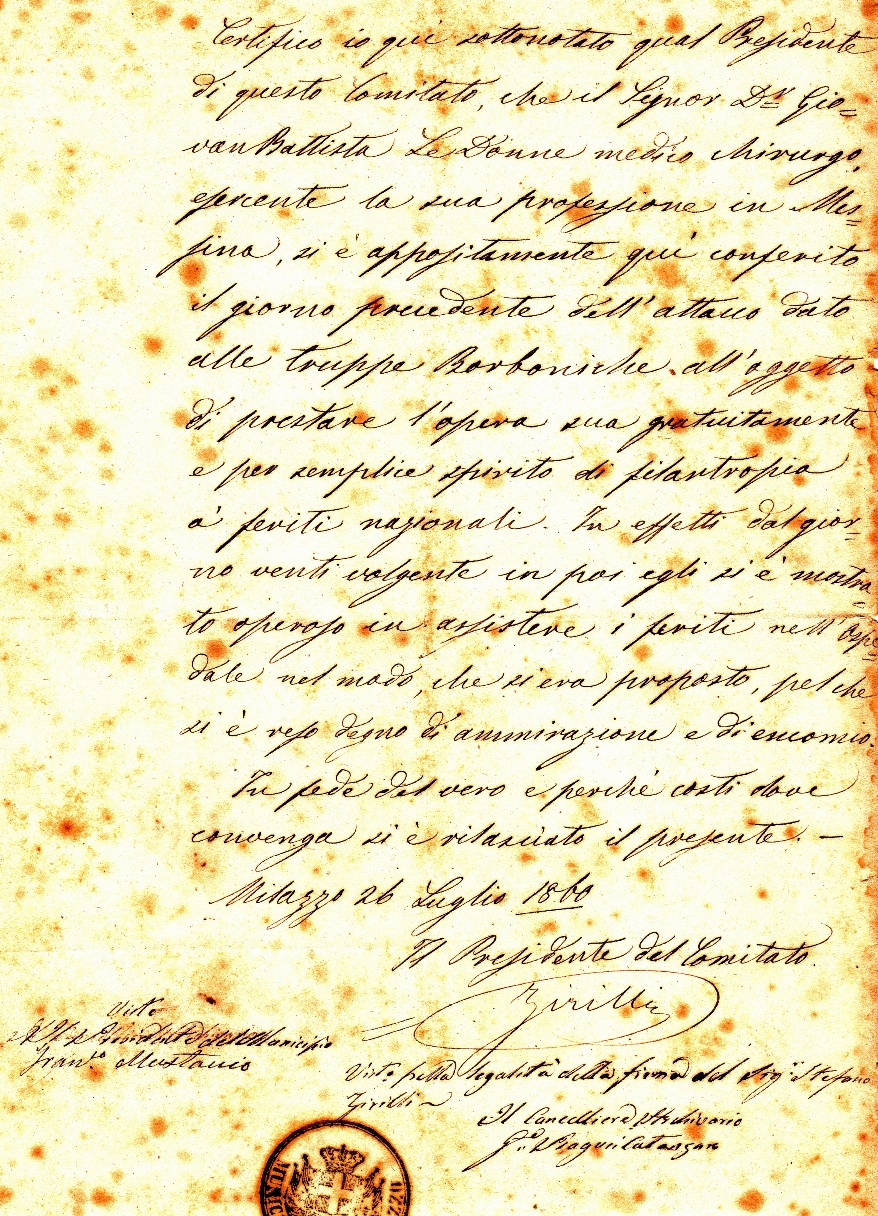 Certifico io quì sottonotato qual Presidente
di questo Comitato, che il Signor Dr. Gio=
van Battista Le Donne medico chirurgo,
esercente la sua professione in Mes=
sina, si è appositamente quì conferito
il giorno precedente dell'attacco dato
alle truppe Borboniche all'oggetto
di prestare l'opera sua gratuitamente
e per semplice spirito di filantropia
a' feriti nazionali. In effetti dal gior=
no venti volgente in poi egli si è mostra=
to operoso in assistere i feriti nell'Ospe=
dale nel modo, che si era proposto, pel che
si è reso degno di ammirazione e di encomio.
In fede del vero e perchè costi dove
convenga si è rilasciato il presente. —
Milazzo 26 Luglio 1860
Il Presidente del Comitato
Zirilli
Visto
Il Presidente del Municipio
Fran.co Mustaccio
Visto pella legalità della firma del Sig.r Stefano
Zirilli
Il Cancelliere Archivario
Catanzaro
MUNIC
OZZO